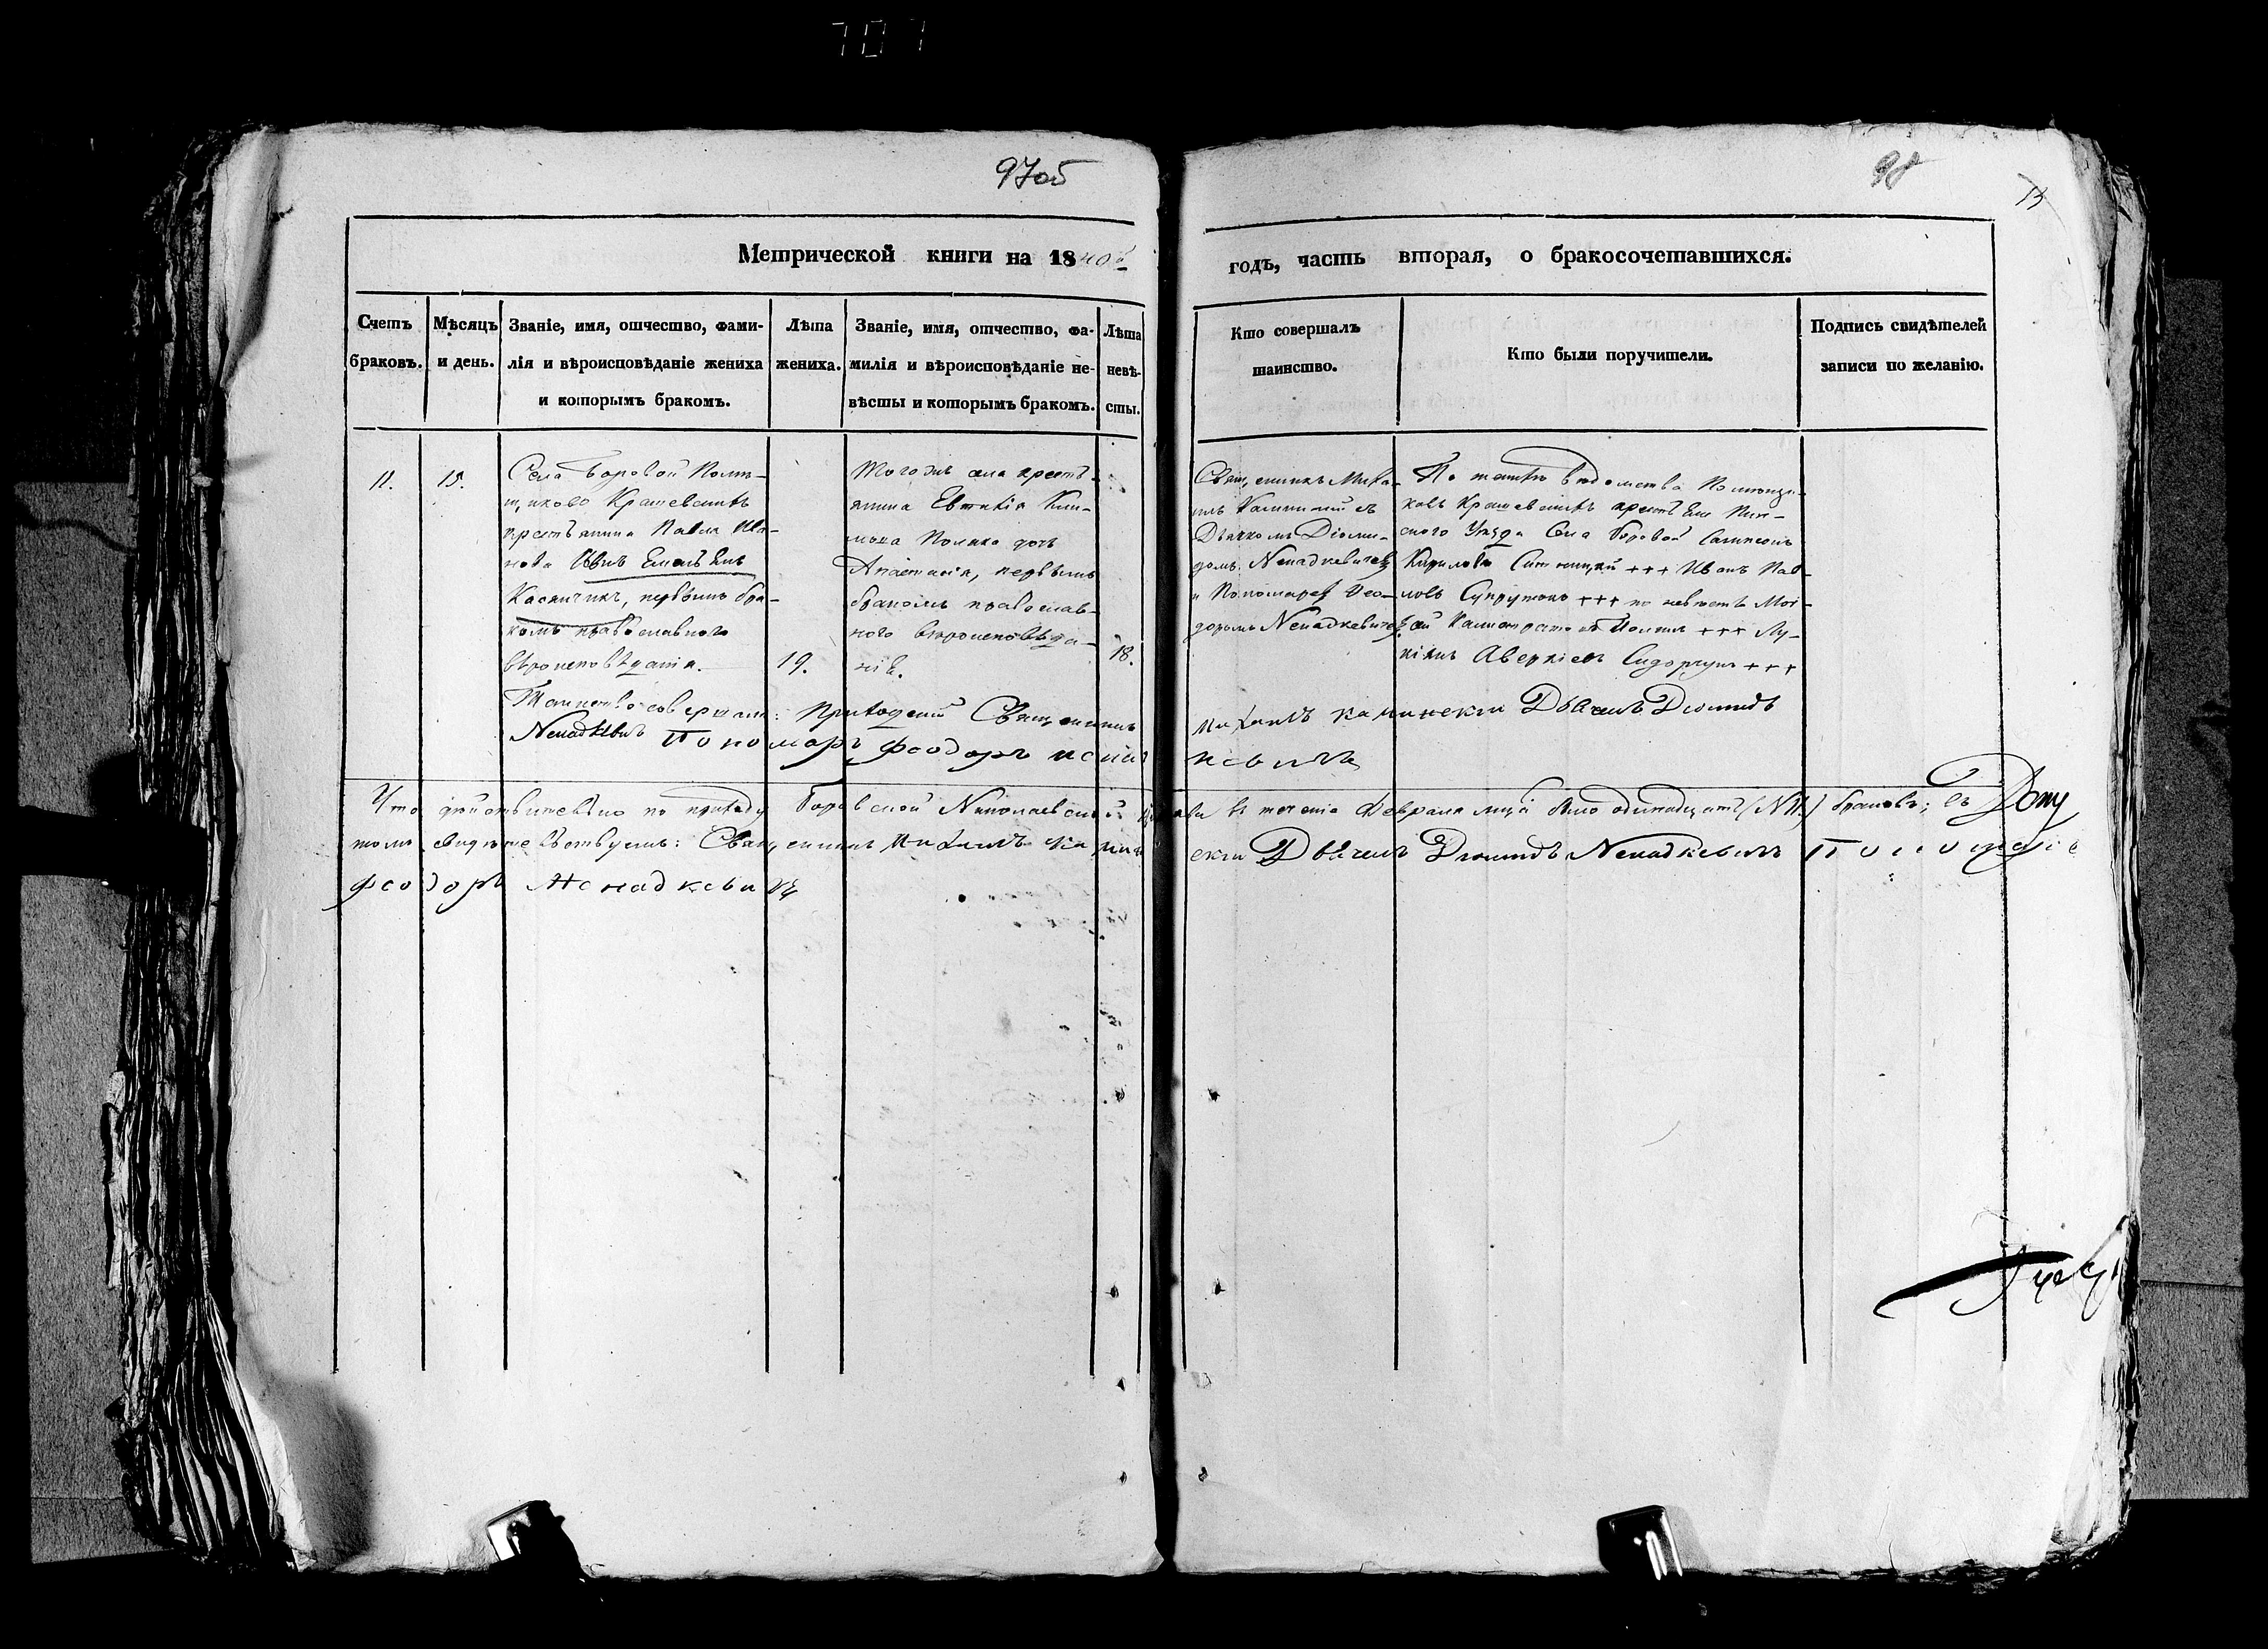 707
97об
98
Метрической книги на 1840й
годъ, часть вторая, о бракосочетавшихся.
Счетъ браковъ.
Мѣсяцъ и день.
Званіе, имя, отчество, фами-
лія и вѣроисповѣданіе жениха
и которымъ бракомъ.
Лѣта жениха.
Званіе, имя, отчество, фа-
милія и вѣроисповѣданіе не-
вѣсты и которымъ бракомъ.
Лѣта невѣ-
сты.
Кто совершалъ
таинство.
Кто были поручители.
Подпись свидѣтелей
записи по желанію.
11.
15.
Села Боровой Помѣ-
щиковъ Крашевскихъ
крестьянина Павла Ива-
нова Сынъ Емельянъ
Касянчикъ, первымъ бра-
комъ православнаго
вѣроисповѣданія.
19.
Тогожъ села кресть-
янина Евтихія Кли-
мова Поляка дочь
Анастасія, первымъ
бракомъ православ-
ного вѣроисповѣда-
нія.
18.
Священникъ Миха-
илъ Каминскій съ
Дьячкомъ Діоми-
домъ Ненадкевичемъ
и Пономаремъ Ѳео-
доромъ Ненадкевичемъ
По женихѣ вѣдомства Помѣщи-
ковъ Крашевскихъ крестьяне Пин-
ского Уѣзда Села Боровой Сампсонъ
Кириловъ Ситницкій +++ Иванъ Пав-
ловъ Супрунюкъ +++ по невѣстѣ Мои-
сей Калистратовъ Полякъ +++ Лу-
кіянъ Аверкіевъ Сидорчукъ +++
Таинство совершали: Приходскій Священникъ Михаилъ Каминскій Дьячекъ Діомидъ
Ненадкевичъ Пономаръ Феодоръ Ненадкевичъ
Что дѣйствительно по приходу Боровской Николаевской церкви въ теченіе Февраля мца было одинадцать (№11.) браковъ; въ
томъ свидѣтельствуемъ: Священникъ Михаилъ Каминскій Дьячекъ Діомидъ Ненадкевичъ Пономарь
Феодоръ Ненадкевичъ